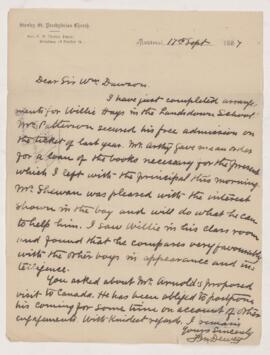 Stanley St. Presbyterian Church.
Montreal, 17th Sept 1887
Dear Sir Wm Dawson.
I have just completed arrange-
ments for Willie Hays in the Lansdowne School
Mr. Patterson secured his free admission on
the ticket of last year. Mr. Arthy gave me an order
for a loan of the books necessary for the present
which I left with the principal this morning
Mr. Shewan was pleased with the interest
shown in the boy and will do what he can
to help him. I saw Willie in his class room
and found that he compares very favourably
with the other boys in appearance and in-
telligence.
You asked about Mr. Arnold's proposed
visit to Canada. He has been obliged to postpone
his coming for some time on account of other
engagements. With Kindest regards, I remain
Yours Sincerely
J. M. Dewey